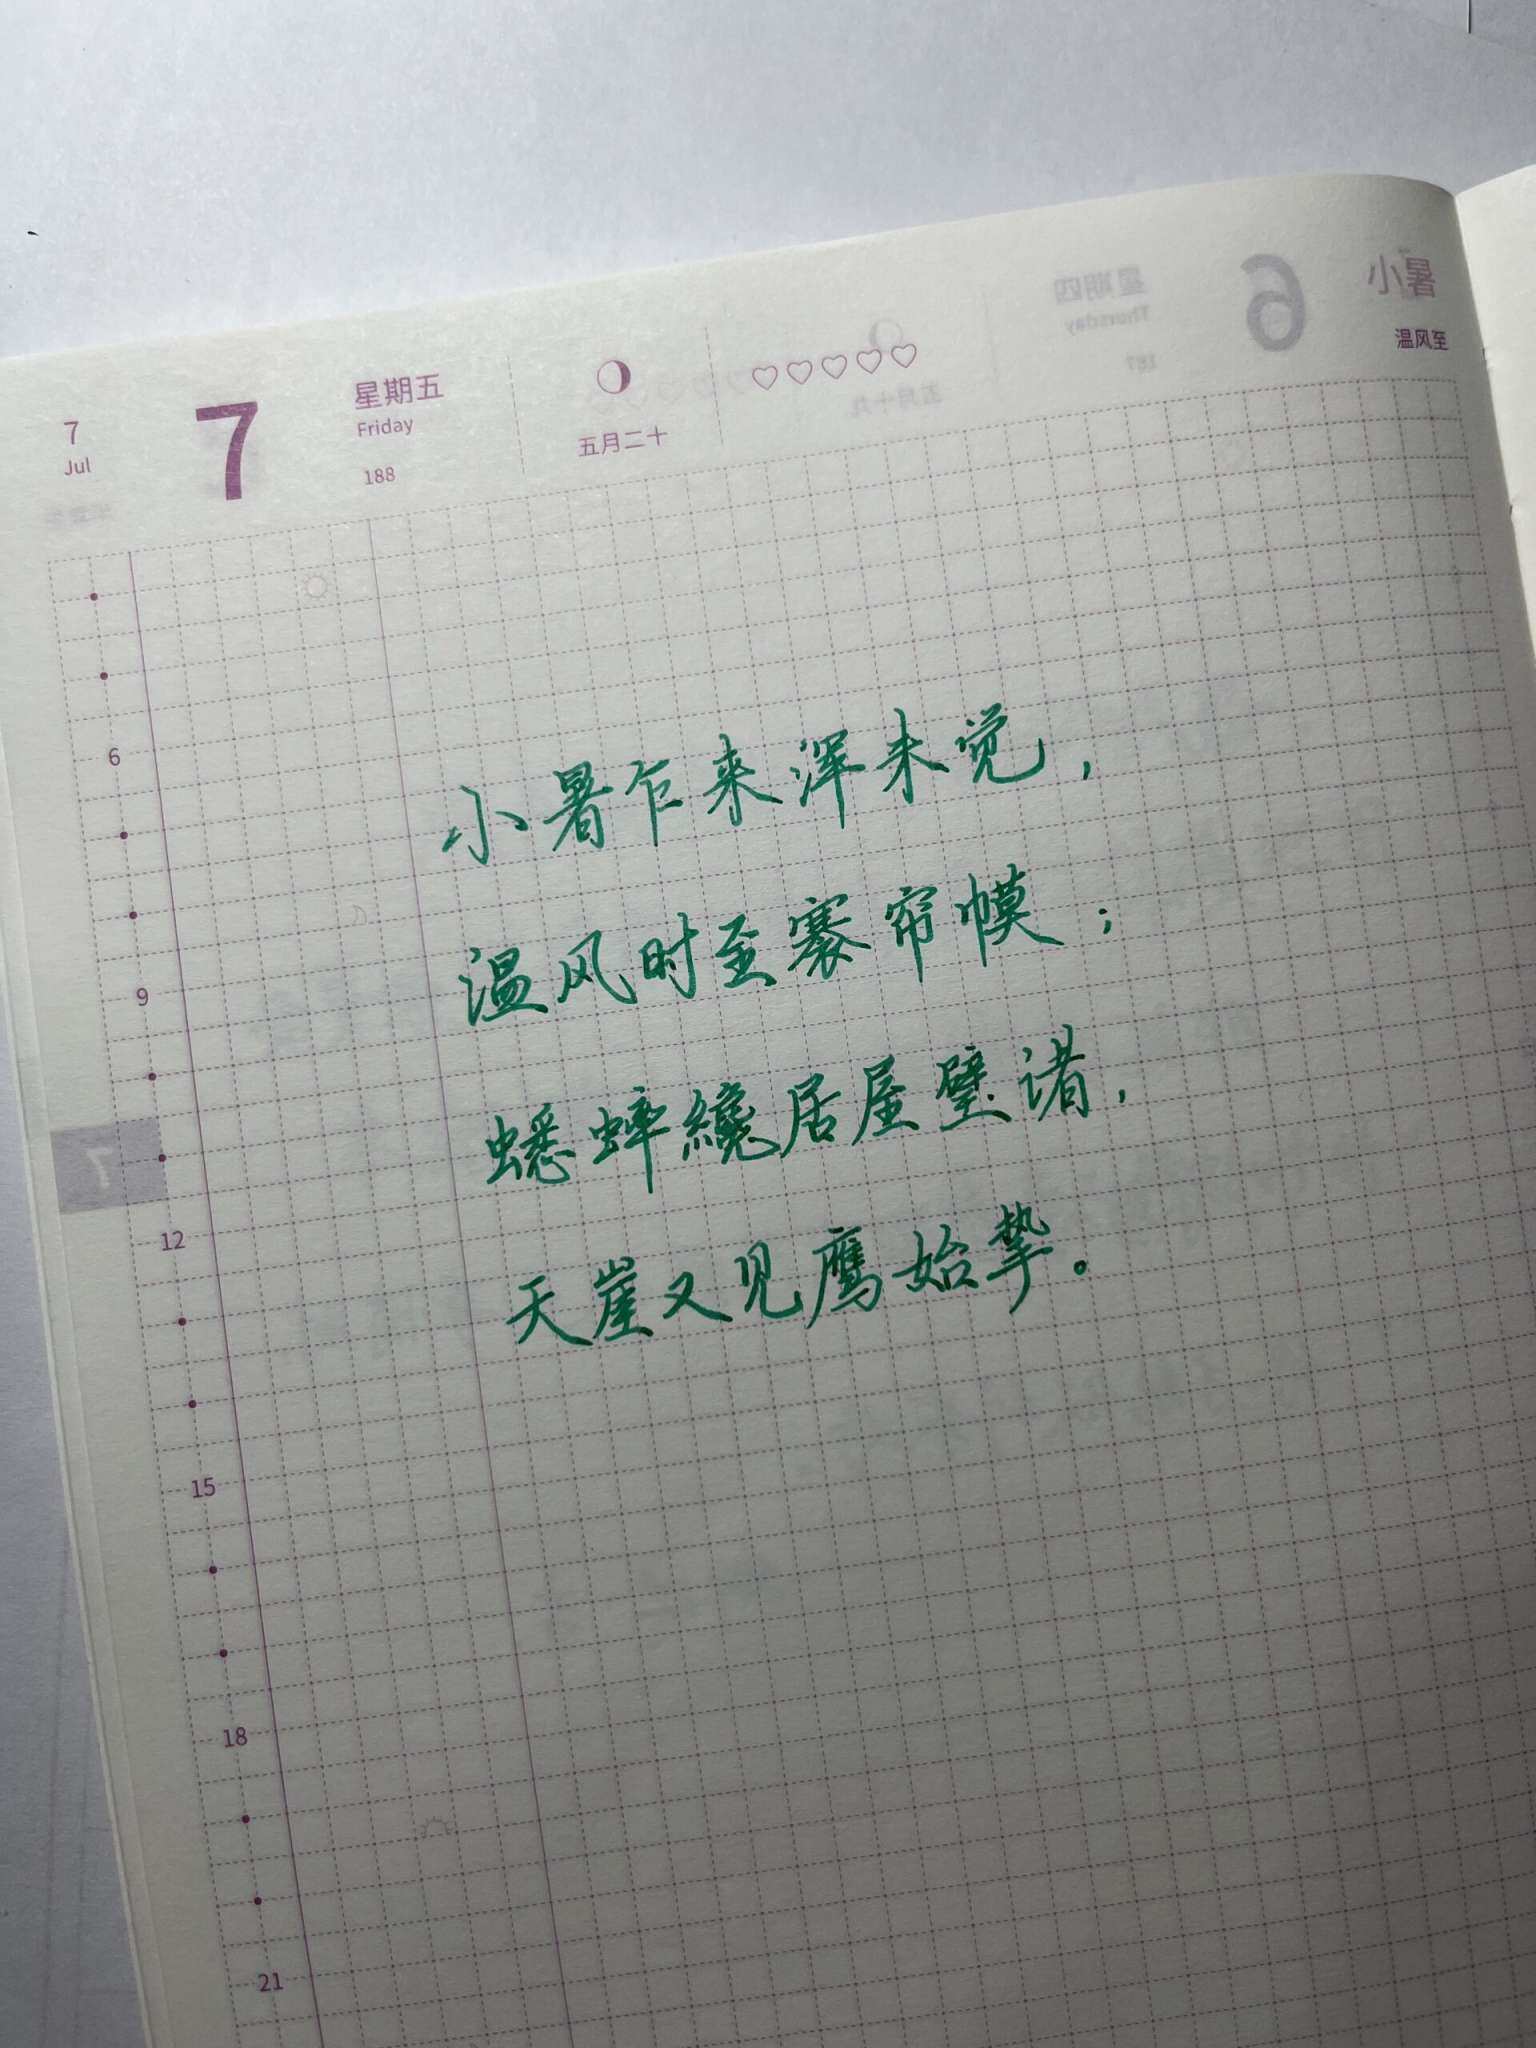 7
Jul
7
星期五
Friday
188
五月二十
小暑
温风至
6
星期四
Thursday
187
五月十九
小暑乍来浑未觉，
温风时至褰帘幙；
蟋蟀纔居屋壁诸，
天崖又见鹰始挚。
6
9
7
12
15
18
21